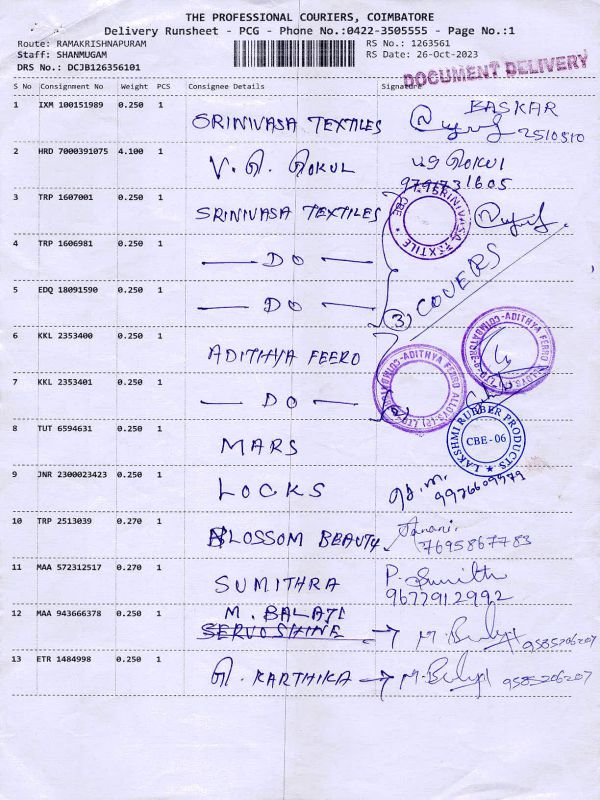 THE PROFESSIONAL COURIERS, COIMBATORE
Delivery Runsheet - PCG - Phone No.:0422-3505555 - Page No.:1
Route: RAMAKRISHNAPURAM
Staff: SHANMUGAM
DRS No.: DCJB126356101
RS No.: 1263561
RS Date: 26-Oct-2023
DOCUMENT DELIVERY
S No Consignment No Weight PCS Consignee Details Signature
1 IXM 100151989 0.250 1 SRINIVASA TEXTILES BASKAR
2510510
2 HRD 7000391075 4.100 1 V. G. GOKUL
9791731605
3 TRP 1607001 0.250 1 SRINIVASA TEXTILES
SRINIVASA TEXTILE CBE
4 TRP 1606981 0.250 1 — DO —
5 EDQ 18091590 0.250 1 — DO — (3) COVERS
6 KKL 2353400 0.250 1 ADITHYA FEERO
ADITHYA FERRO ALLOYS (P) LTD
7 KKL 2353401 0.250 1 — DO — (2)
8 TUT 6594631 0.250 1 MARS
LAKSHMI RUBBER PRODUCTS
CBE-06
9 JNR 2300023423 0.250 1 LOCKS
9976609979
10 TRP 2513039 0.270 1 BLOSSOM BEAUTY Janani.
7695867783
11 MAA 572312517 0.270 1 SUMITHRA
9677912992
12 MAA 943666378 0.250 1 M. BALAJI
SERVOSHINE 9585206207
13 ETR 1484998 0.250 1 G. KARTHIKA 9585206207